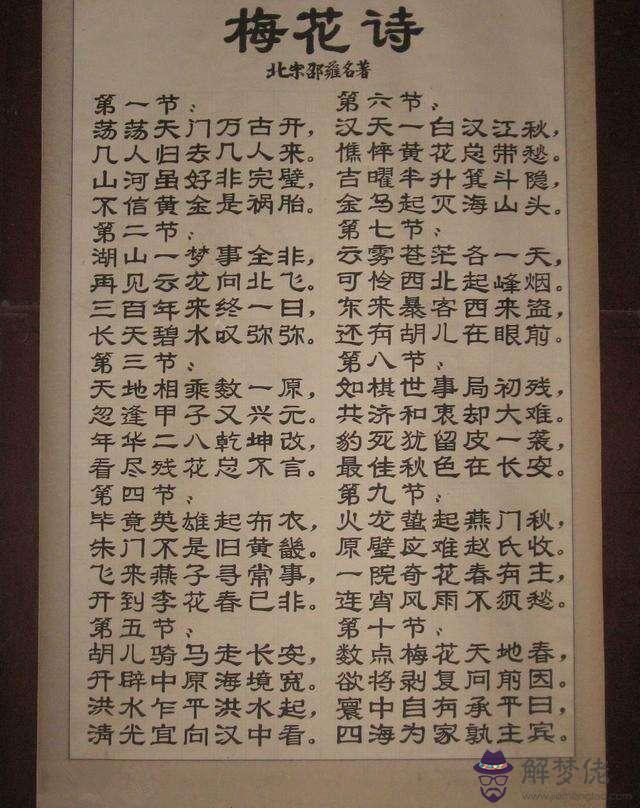 梅花诗
北宋邵雍名著
第一节：
荡荡天门万古开，
几人归去几人来。
山河虽好非完璧，
不信黄金是祸胎。
第二节：
湖山一梦事全非，
再见云龙向北飞。
三百年来终一日，
长天碧水叹弥弥。
第三节：
天地相乘数一原，
忽逢甲子又兴元。
年华二八乾坤改，
看尽残花总不言。
第四节：
毕竟英雄起布衣，
朱门不是旧黄畿。
飞来燕子寻常事，
开到李花春已非。
第五节：
胡儿骑马走长安，
开辟中原海境宽。
洪水乍平洪水起，
清光宜向汉中看。
第六节：
汉天一白汉江秋，
憔悴黄花总带愁。
吉曜半升箕斗隐，
金乌起灭海山头。
第七节：
云雾苍茫各一天，
可怜西北起峰烟。
东来暴客西来盗，
还有胡儿在眼前。
第八节：
如棋世事局初残，
共济和衷却大难。
豹死犹留皮一袭，
最佳秋色在长安。
第九节：
火龙蛰起燕门秋，
原璧应难赵氏收。
一院奇花春有主，
连宵风雨不须愁。
第十节：
数点梅花天地春，
欲将剥复问前因。
寰中自有承平日，
四海为家孰主宾。
解梦佬